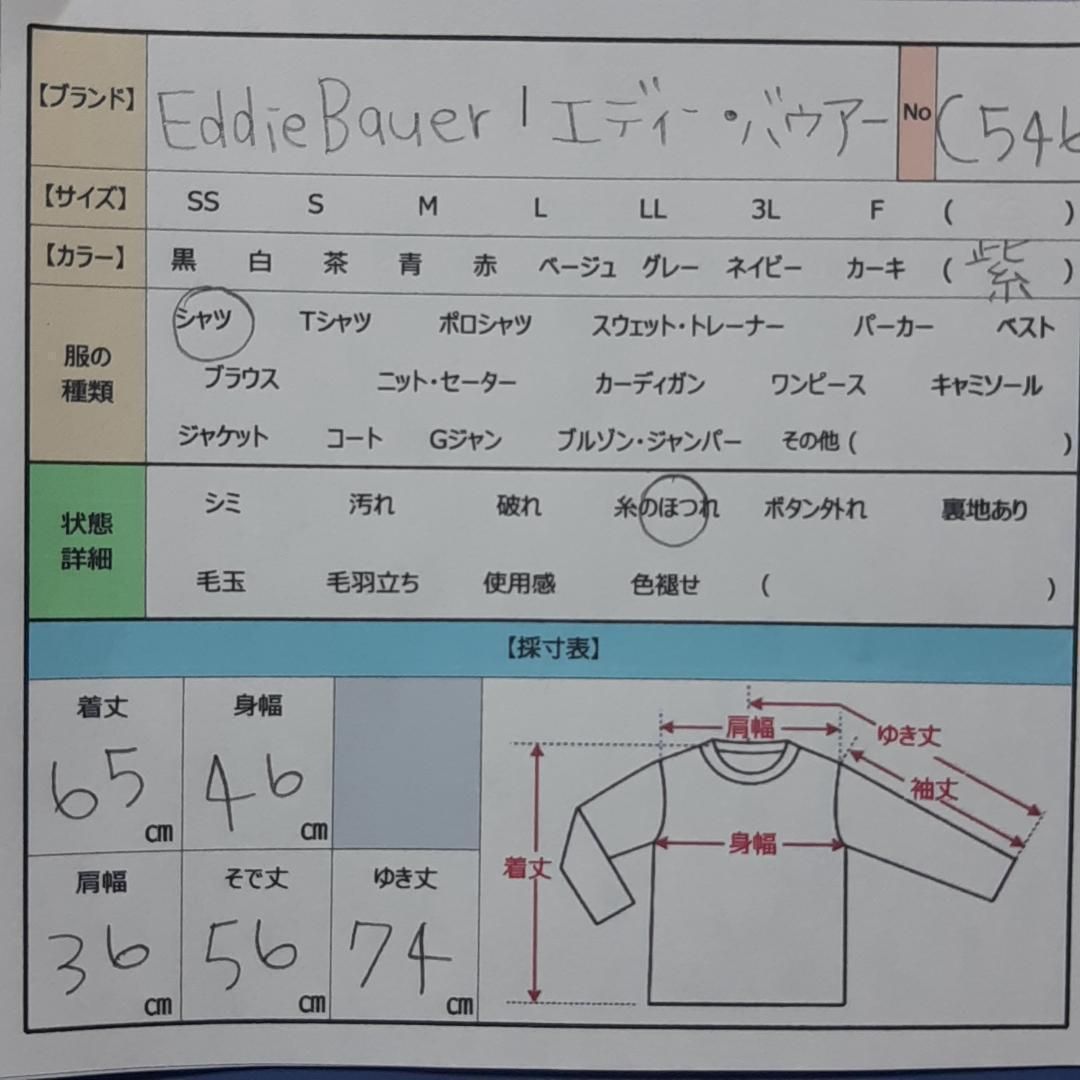 【ブランド】 EddieBauer | エディー・バウアー No (546
【サイズ】 SS S M L LL 3L F ( )
【カラー】 黒 白 茶 青 赤 ベージュ グレー ネイビー カーキ ( 紫 )
服の種類 シャツ Tシャツ ポロシャツ スウェット・トレーナー パーカー ベスト
ブラウス ニット・セーター カーディガン ワンピース キャミソール
ジャケット コート Gジャン ブルゾン・ジャンパー その他 ( )
状態詳細 シミ 汚れ 破れ 糸のほつれ ボタン外れ 裏地あり
毛玉 毛羽立ち 使用感 色褪せ ( )
【採寸表】
着丈 身幅
65 cm 46 cm
肩幅 そで丈 ゆき丈
36 cm 56 cm 74 cm
肩幅 ゆき丈
袖丈
身幅
着丈